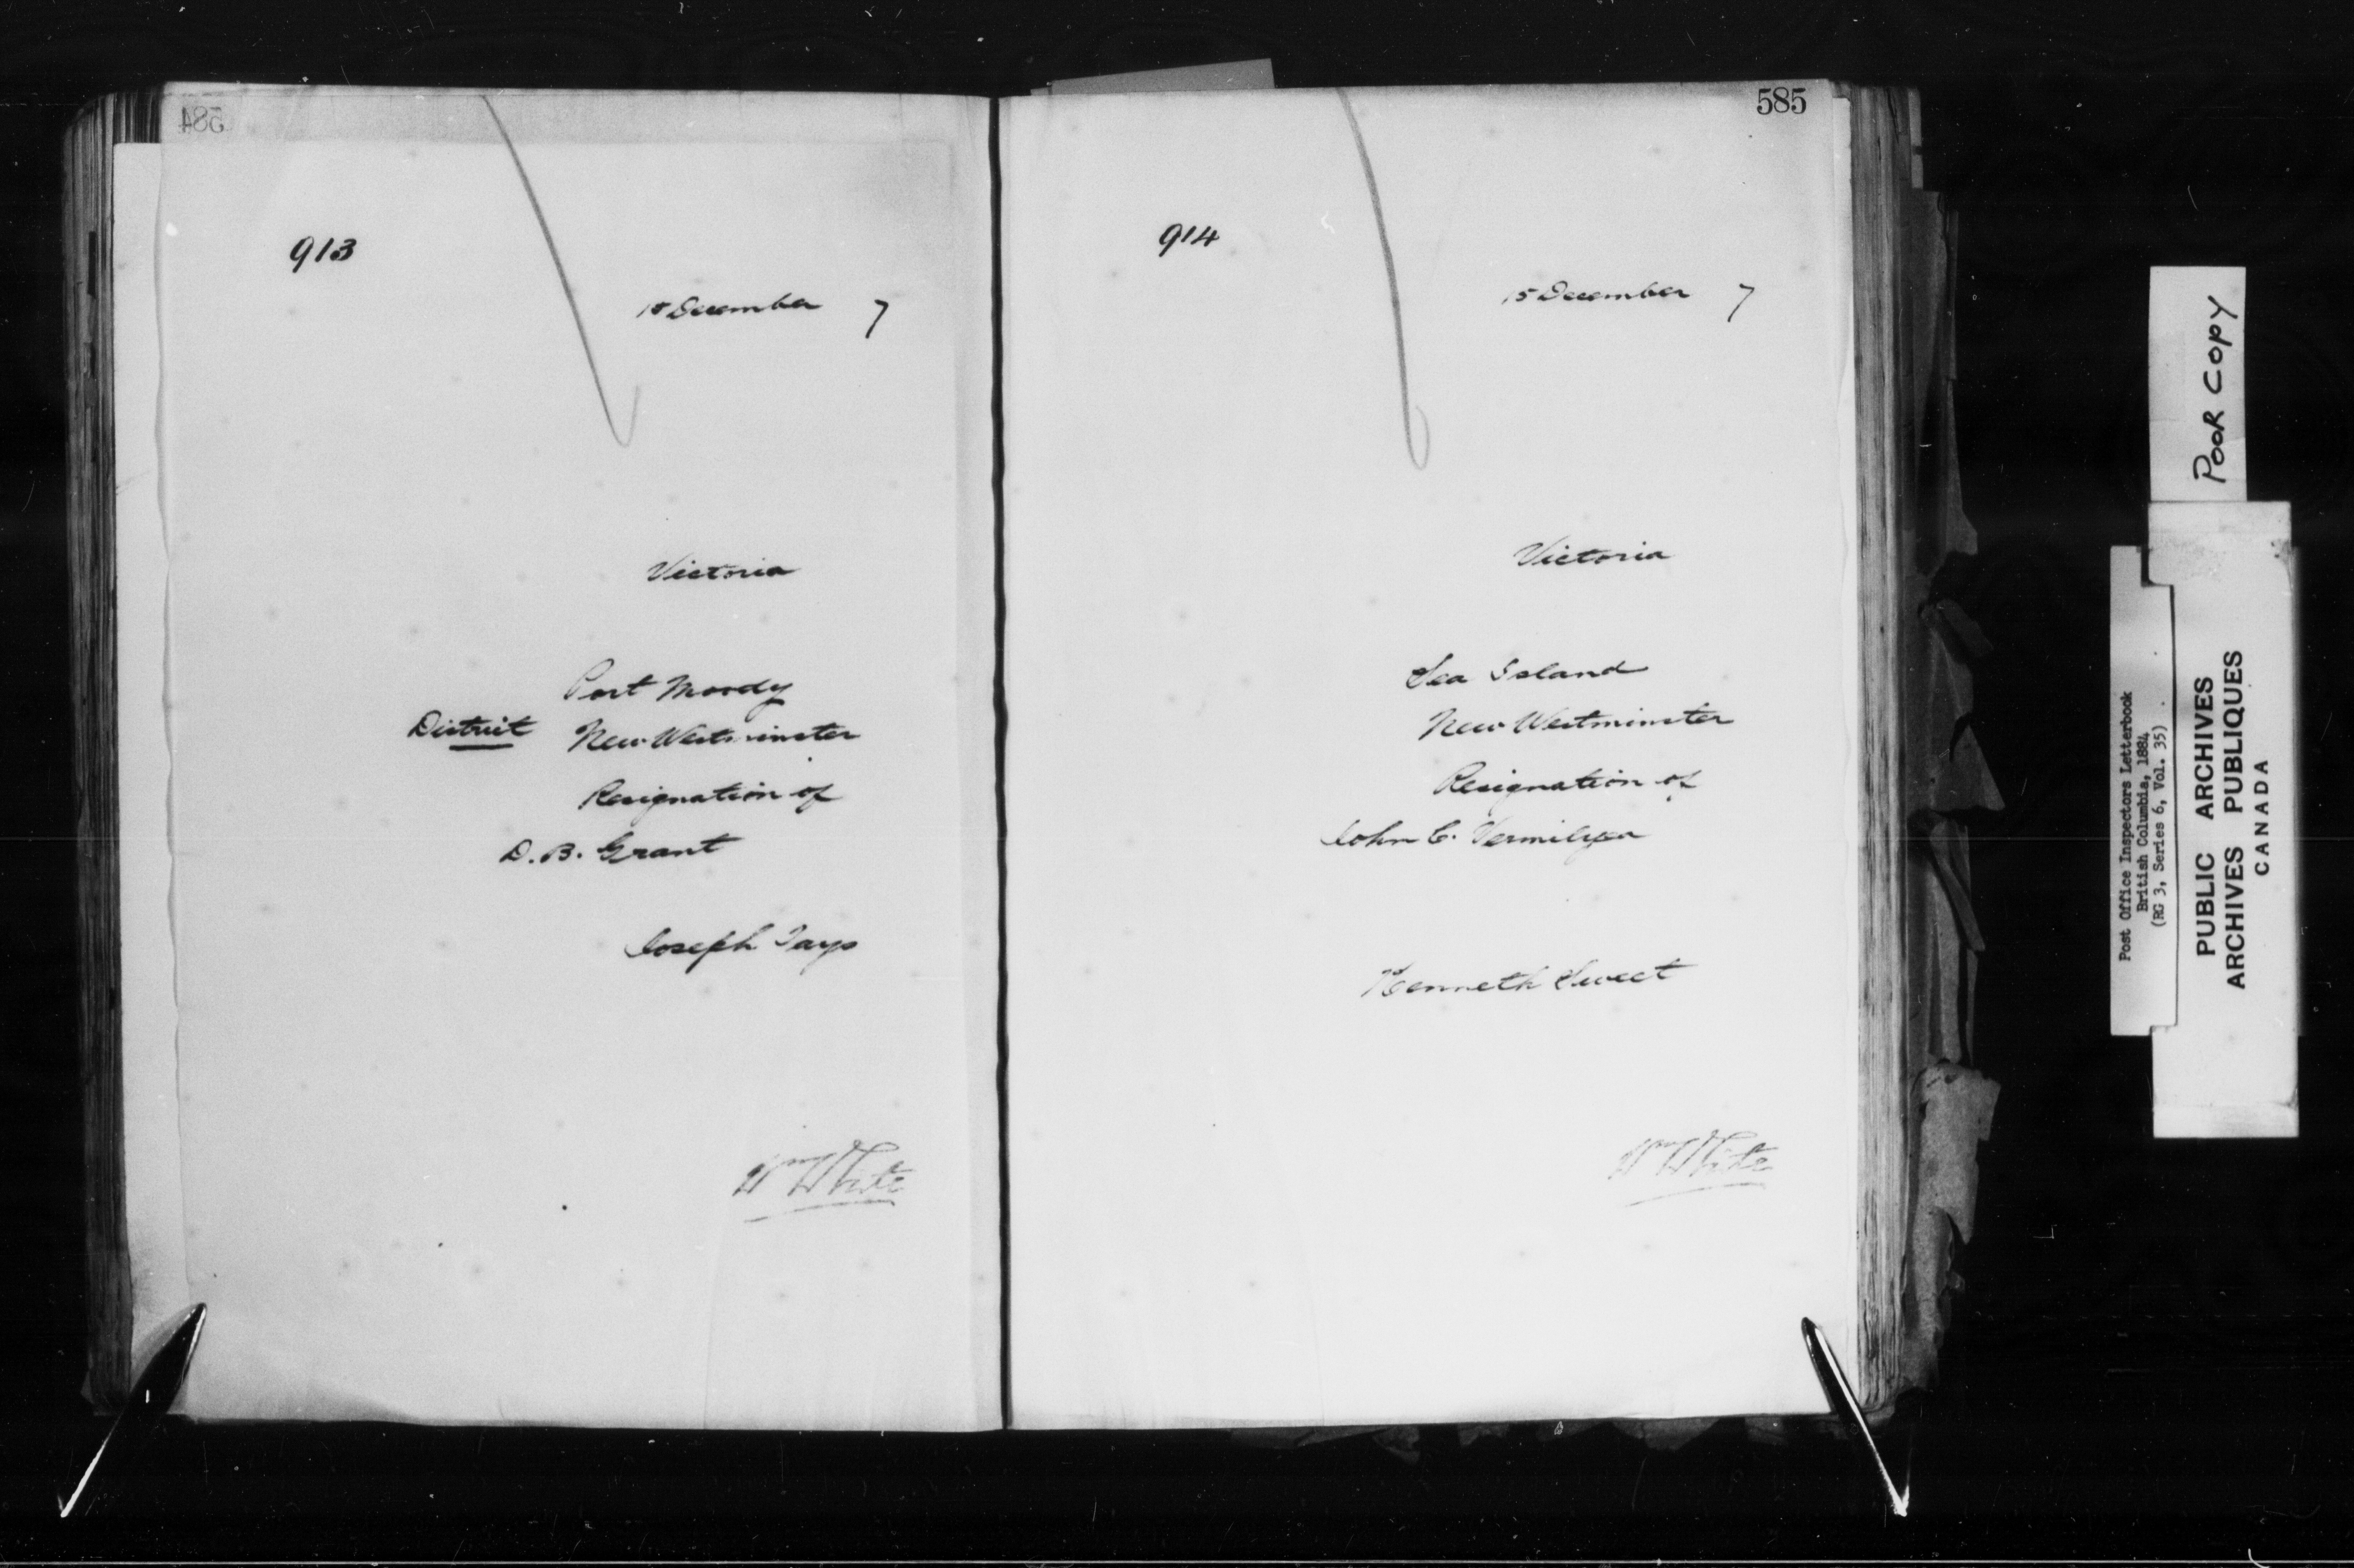 584
913
15 December 7
Victoria
Port Moody
District New Westminster
Resignation of
D. B. Grant
Joseph Tays
Wm White
585
914
15 December 7
Victoria
Sea Island
New Westminster
Resignation of
John C. Vermilyea
Kenneth Sweet
Wm White
POOR COPY
Post Office Inspectors Letterbook
British Columbia, 1884
(RG 3, Series 6, Vol. 35)
PUBLIC ARCHIVES
ARCHIVES PUBLIQUES
CANADA